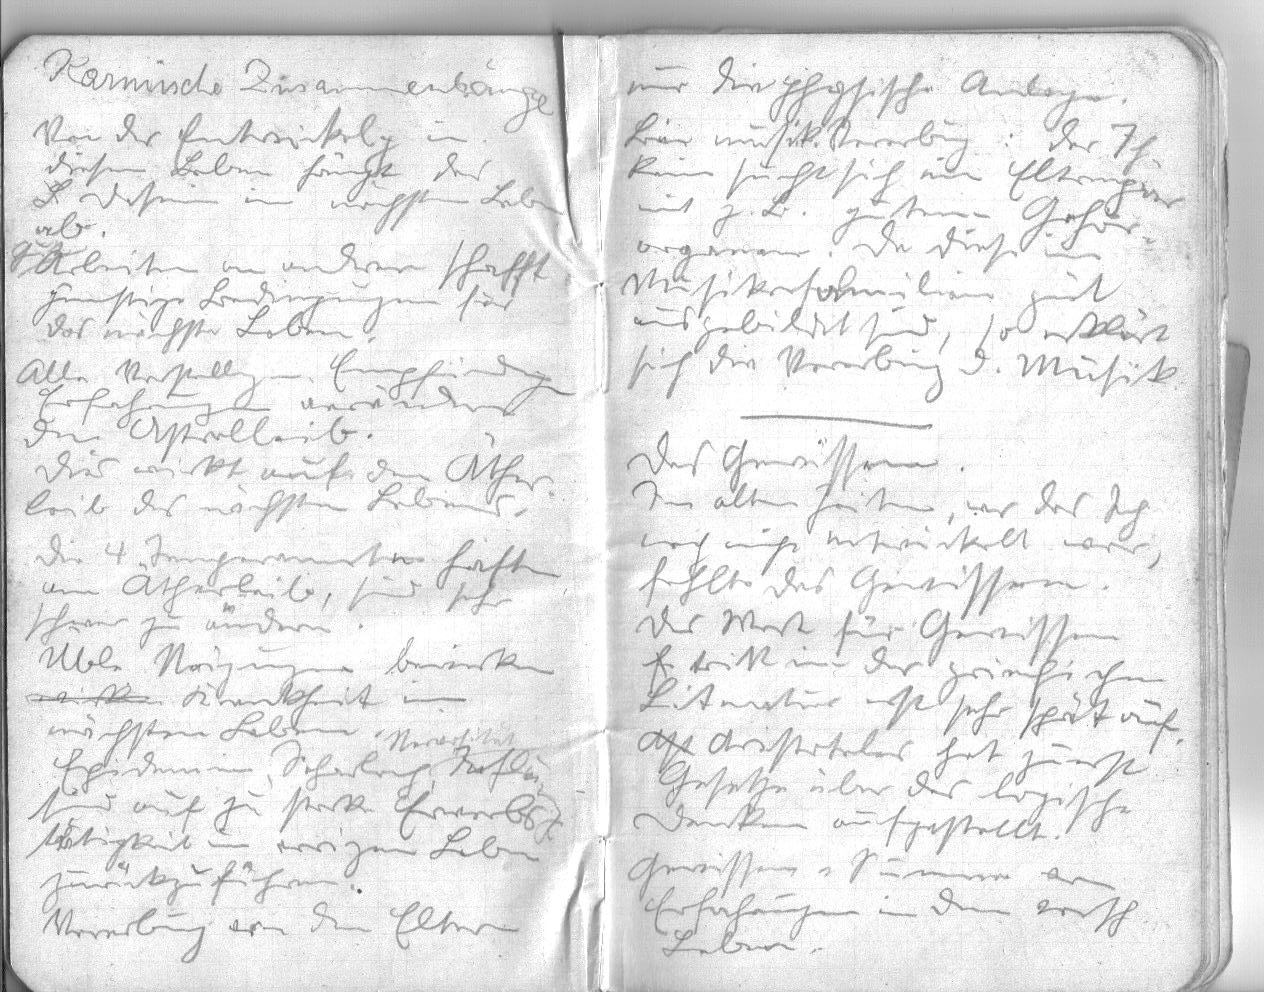 Karmische Zusammenhänge
Von der Entwickelg in
diesem Leben hängt das
Dasein im nächsten Leben
ab.
Arbeiten an anderen schafft
günstige Bedingungen für
das nächste Leben.
Alle Vorstellgen, Empfindungen
Erfahrungen verändern
den Astralleib.
Dies wirkt auf den Äther-
leib des nächsten Lebens.
Die 4 Temperamente haften
am Ätherleib, sind sehr
schwer zu ändern.
Üble Neigungen bewirken
Krankheit im
nächsten Leben. Nervosität
Epidemien, Scharlach,
sind auf zu starke Erwerbs-
tätigkeit im vorigen Leben
zurückzuführen.
Vererbung von den Eltern
nur die physische Anlage.
Keine musik. Vererbung: der Ich
keim sucht sich ein Elternpaar
mit z. B. gutem Gehör-
organen. Da diese in
Musikerfamilien gut
ausgebildet sind, so erklärt
sich die Vererbung d. Musik
Das Gewissen.
In alten Zeiten, wo das Ich
noch nicht entwickelt war,
fehlte das Gewissen.
Das Wort für Gewissen
tritt in der griechischen
Literatur erst sehr spät auf.
Aristoteles hat zuerst
Gesetze über das logische
Denken aufgestellt.
Gewissen = Summe von
Erfahrungen in den versch.
Leben.